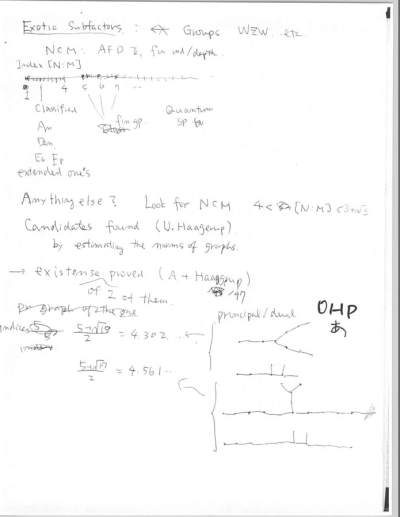 Exotic Subfactors : Groups WZW etc.
NCM : AFD II, fin ind/depth.
Index [N:M]
1 4 5 6 7 ...
Classified
An
Den
E6 E8
extended one's
fin gp.
Quantum
Anything else? Look for NCM 4 < [N:M] < 3+√3
Candidates found (U. Haagerup)
by estimating the norms of graphs.
→ existense proved (A + Haagerup)
of 2 of them. '97
principal/dual
OHP
あ
indices (5+√13)/2 = 4.302...
(5+√17)/2 = 4.561...